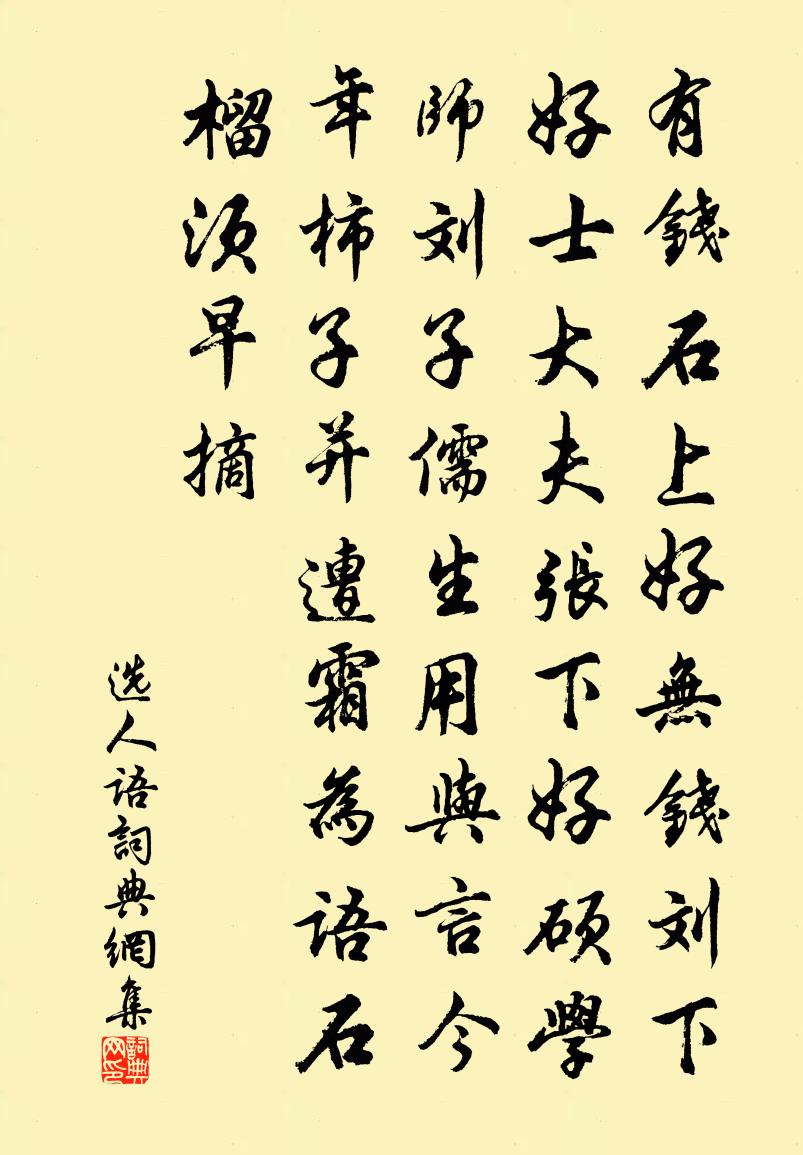 有錢石上好無錢刘下
好士大夫張下好碩學
師刘子儒生用與言今
年柿子并遭霜為語石
榴须早摘
选人语詞典網集
詞典网印